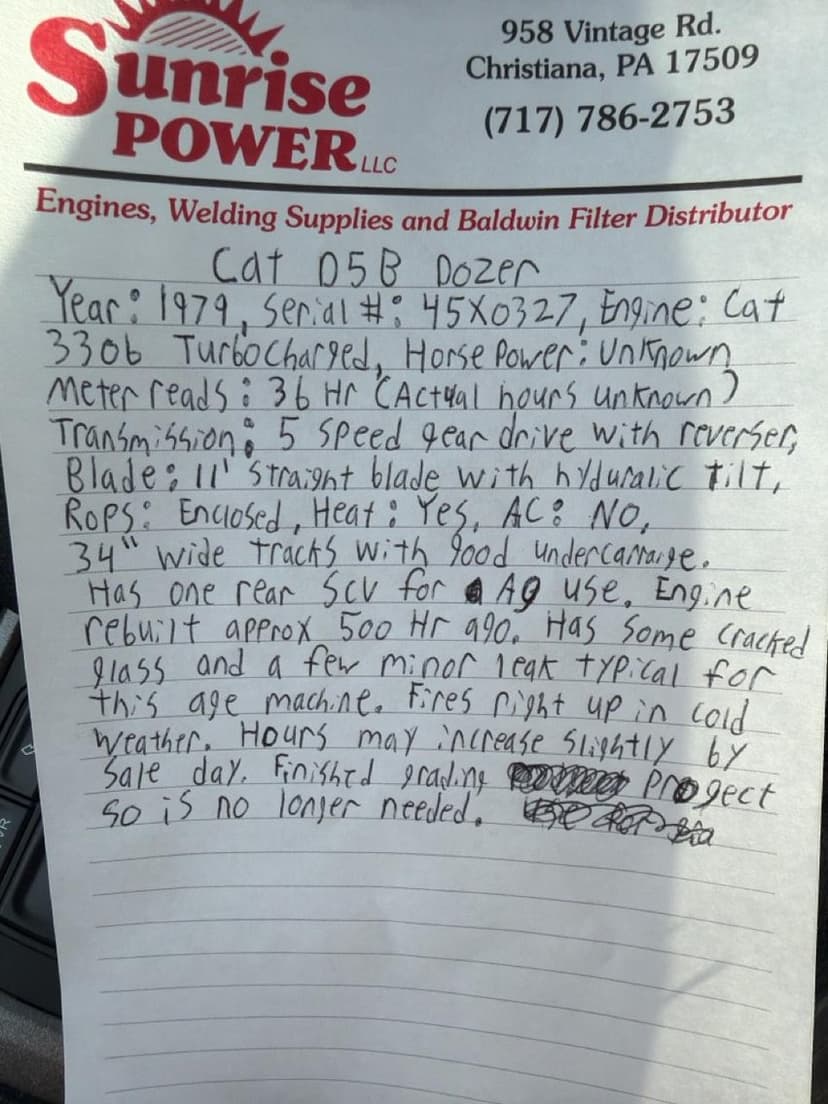 Sunrise
POWER LLC
958 Vintage Rd.
Christiana, PA 17509
(717) 786-2753
Engines, Welding Supplies and Baldwin Filter Distributor
Cat D5B Dozer
Year: 1979, Serial #: 45X0327, Engine: Cat
3306 Turbocharged, Horse Power: Unknown
Meter reads: 36 Hr (Actual hours unknown)
Transmission: 5 speed gear drive with reverser,
Blade: 11' straight blade with hyduralic tilt,
Rops: Enclosed, Heat: Yes, AC: NO,
34" wide tracks with good undercarraige.
Has one rear SCV for Ag use. Engine
rebuilt approx 500 Hr ago. Has some cracked
glass and a few minor leak typical for
this age machine. Fires right up in cold
weather. Hours may increase slightly by
Sale day. Finished grading Progect
so is no longer needed.